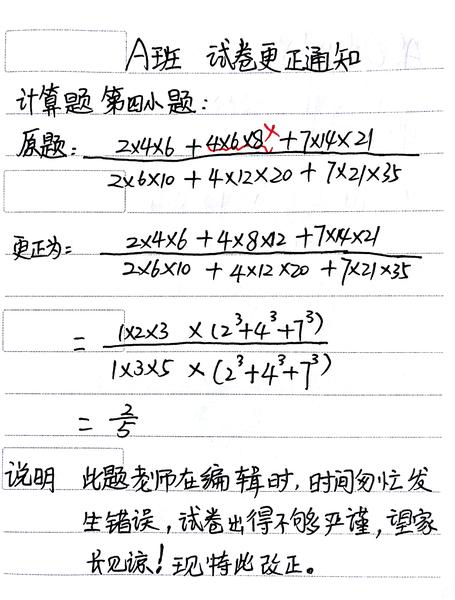 A班 试卷更正通知
计算题 第四小题：
原题： 2×4×6 + 4×6×8 × + 7×14×21
2×6×10 + 4×12×20 + 7×21×35
更正为： 2×4×6 + 4×8×12 + 7×14×21
2×6×10 + 4×12×20 + 7×21×35
= 1×2×3 × (2³+4³+7³)
1×3×5 × (2³+4³+7³)
= 2
5
说明 此题老师在编辑时，时间匆忙发
生错误，试卷出得不够严谨，望家
长见谅！现特此改正。